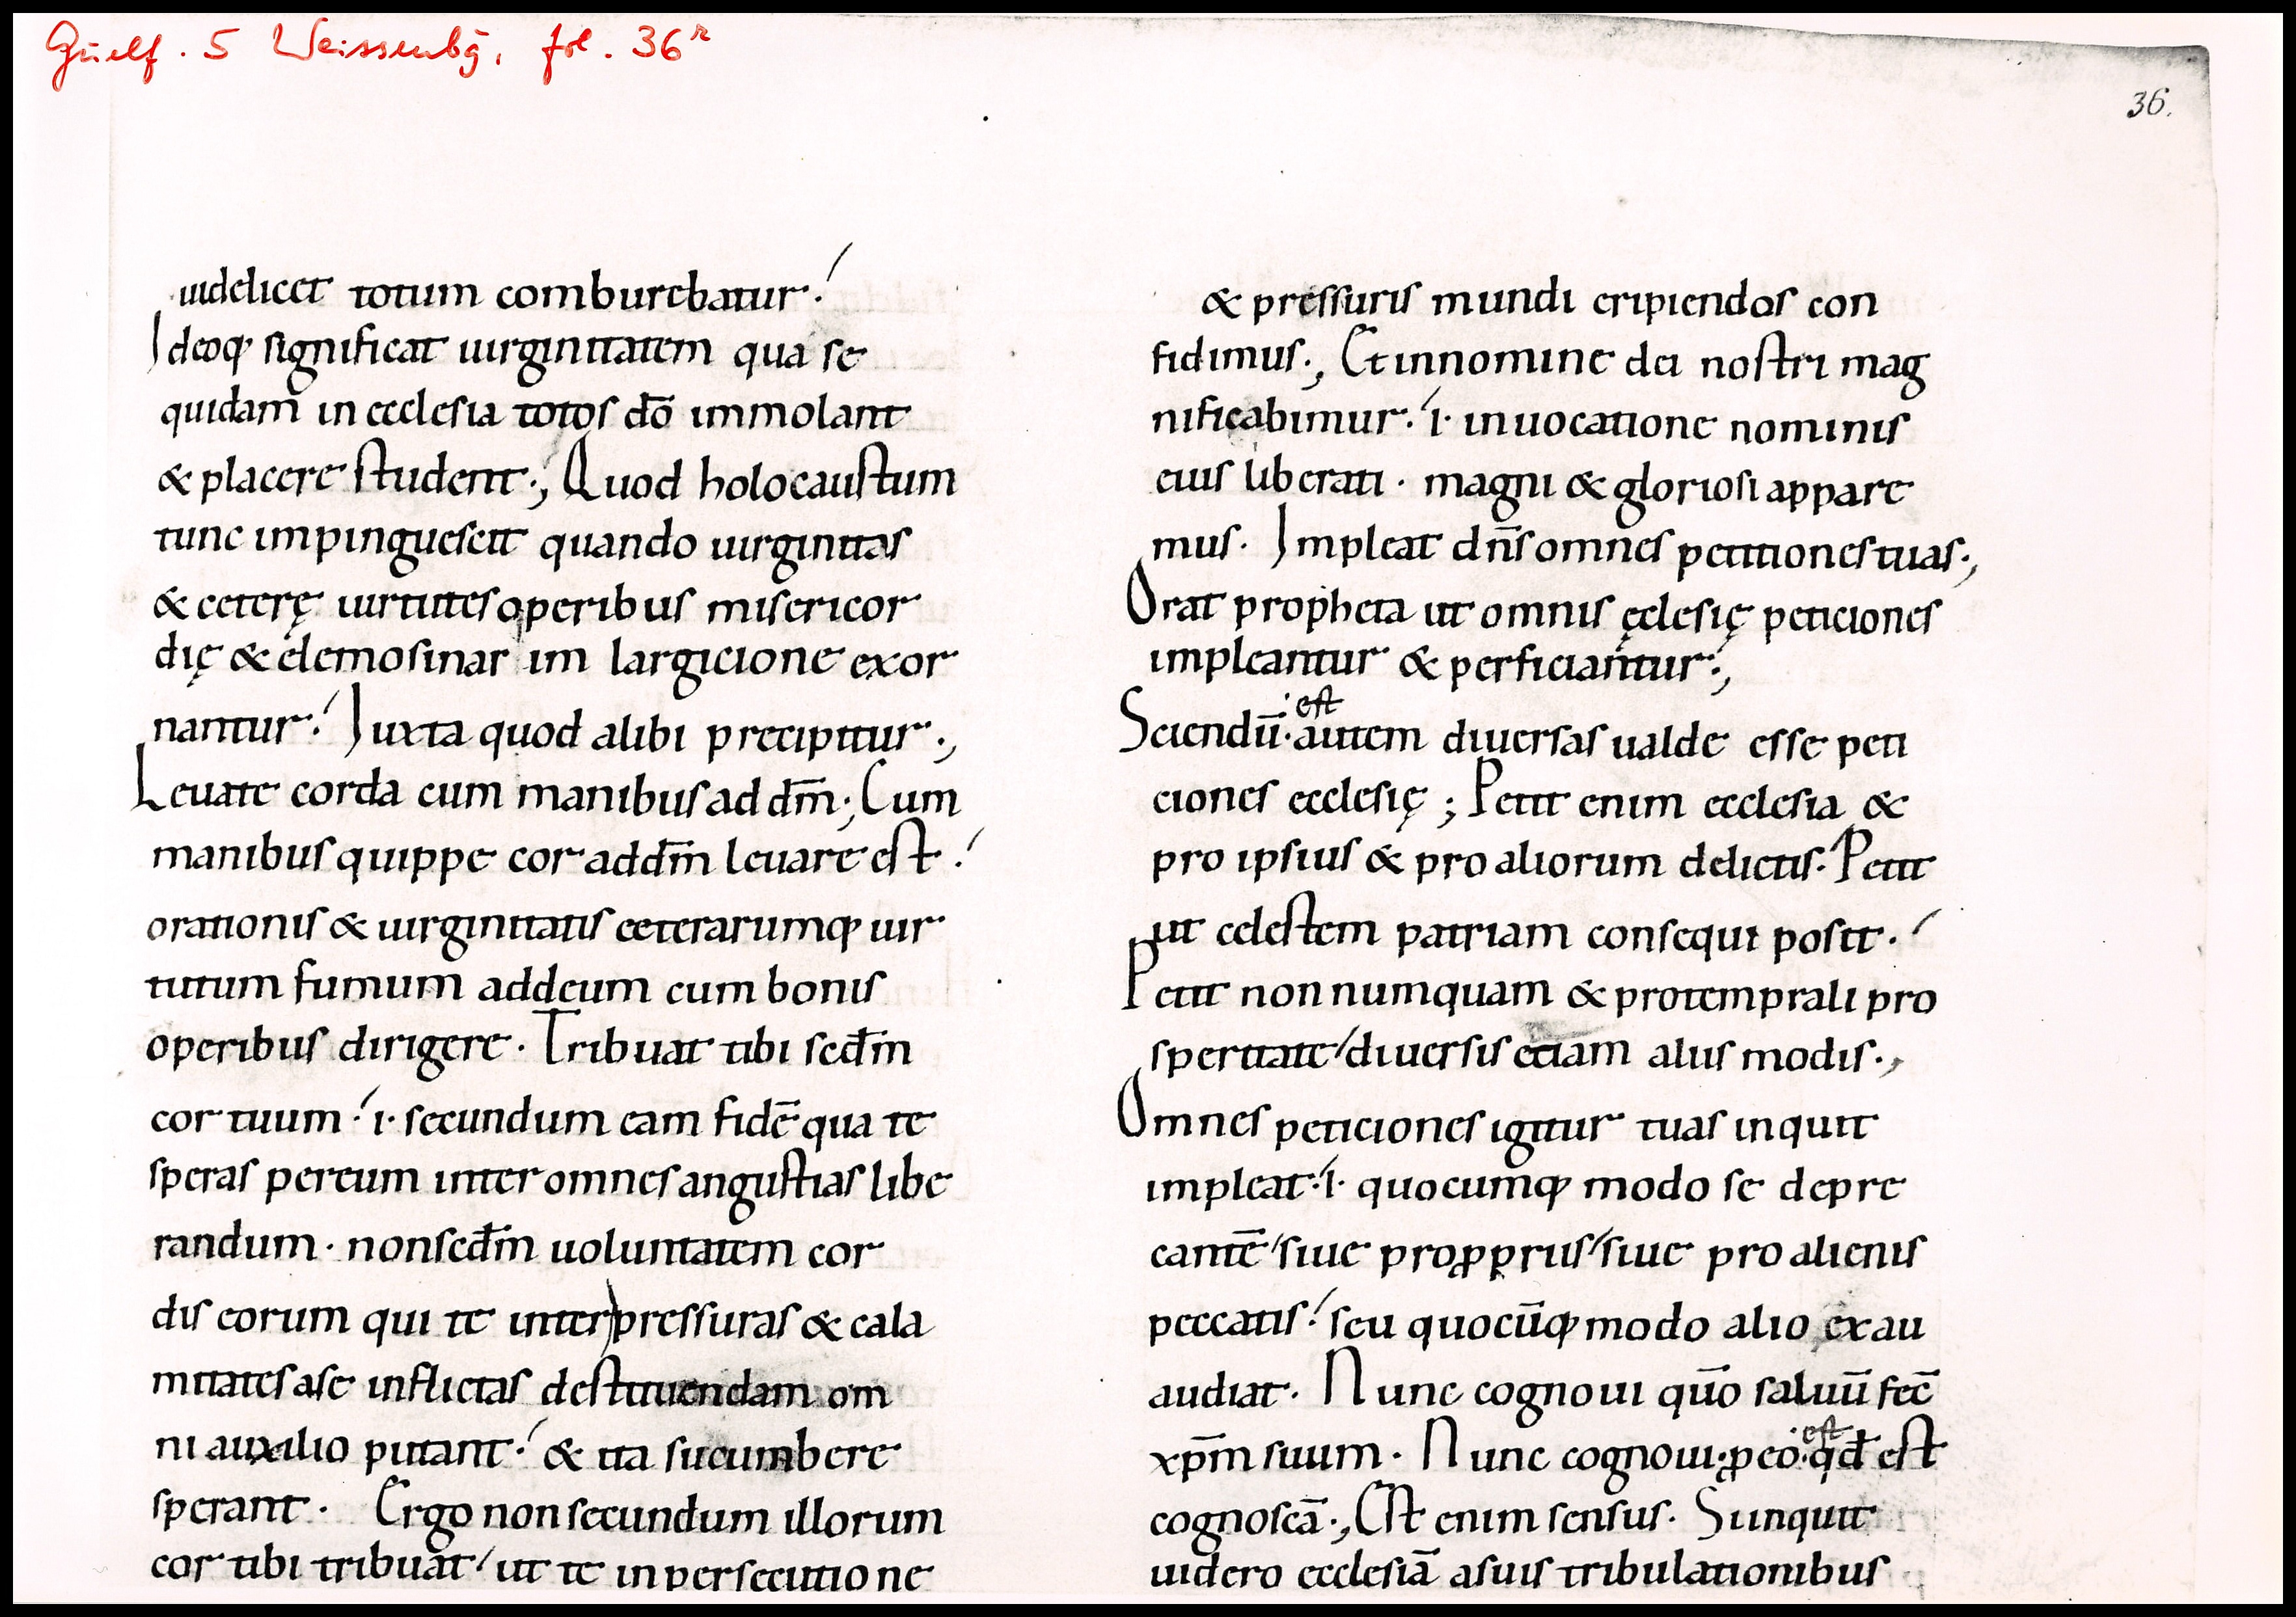 Guelf. 5 Weissenbg, fol. 36r
36.
uidelicet totum comburebatur.
Ideoq; significat uirginitatem qua se
quidam in ecclesia totos dō immolant
& placere student; Quod holocaustum
tunc impinguescit quando uirginitas
& ceterę uirtutes operibus misericor
dię & elemosinar im largicione exor
nantur. Iuxta quod alibi precipitur;
Leuate corda cum manibus ad dm̄; Cum
manibus quippe cor ad dm̄ leuare est.
orationis & uirginitatis ceterarumq; uir
tutum fumum ad deum cum bonis
operibus dirigere. Tribuat tibi scđm
cor tuum. i. secundum eam fidē qua te
speras per eum inter omnes angustias libe
randum. non scđm uoluntatem cor
dis eorum qui te inter pressuras & cala
mitates a se inflictas destituendam om
ni auxilio putant. & ita sucumbere
sperant. Ergo non secundum illorum
cor tibi tribuat ut te in persecutione
& pressuris mundi eripiendos con
fidimus; Et in nomine dei nostri mag
nificabimur. i. inuocatione nominis
eius liberati. magni & gloriosi appare
mus. Impleat dn̄s omnes petitiones tuas;
Orat propheta ut omnis ęclesię peticiones
impleantur & perficiantur;
est
Sciendū autem diuersas ualde esse peti
ciones ecclesię; Petit enim ecclesia &
pro ipsius & pro aliorum delictis. Petit
ut celestem patriam consequi posit.
Petit non numquam & pro temprali pro
speritate/ diuersis etiam aliis modis;
Omnes peticiones igitur tuas inquit
impleat. i. quocumq; modo se depre
cantē/ siue pro pprriis/ siue pro alienis
peccatis. seu quocūq; modo alio exau
audiat. Nunc cognoui qūo saluū fec̄
est
xp̄m suum. Nunc cognoui. p eo. qđ est
cognoscā; Est enim sensus. Si inquit
uidero ecclesiā a suis tribulationibus